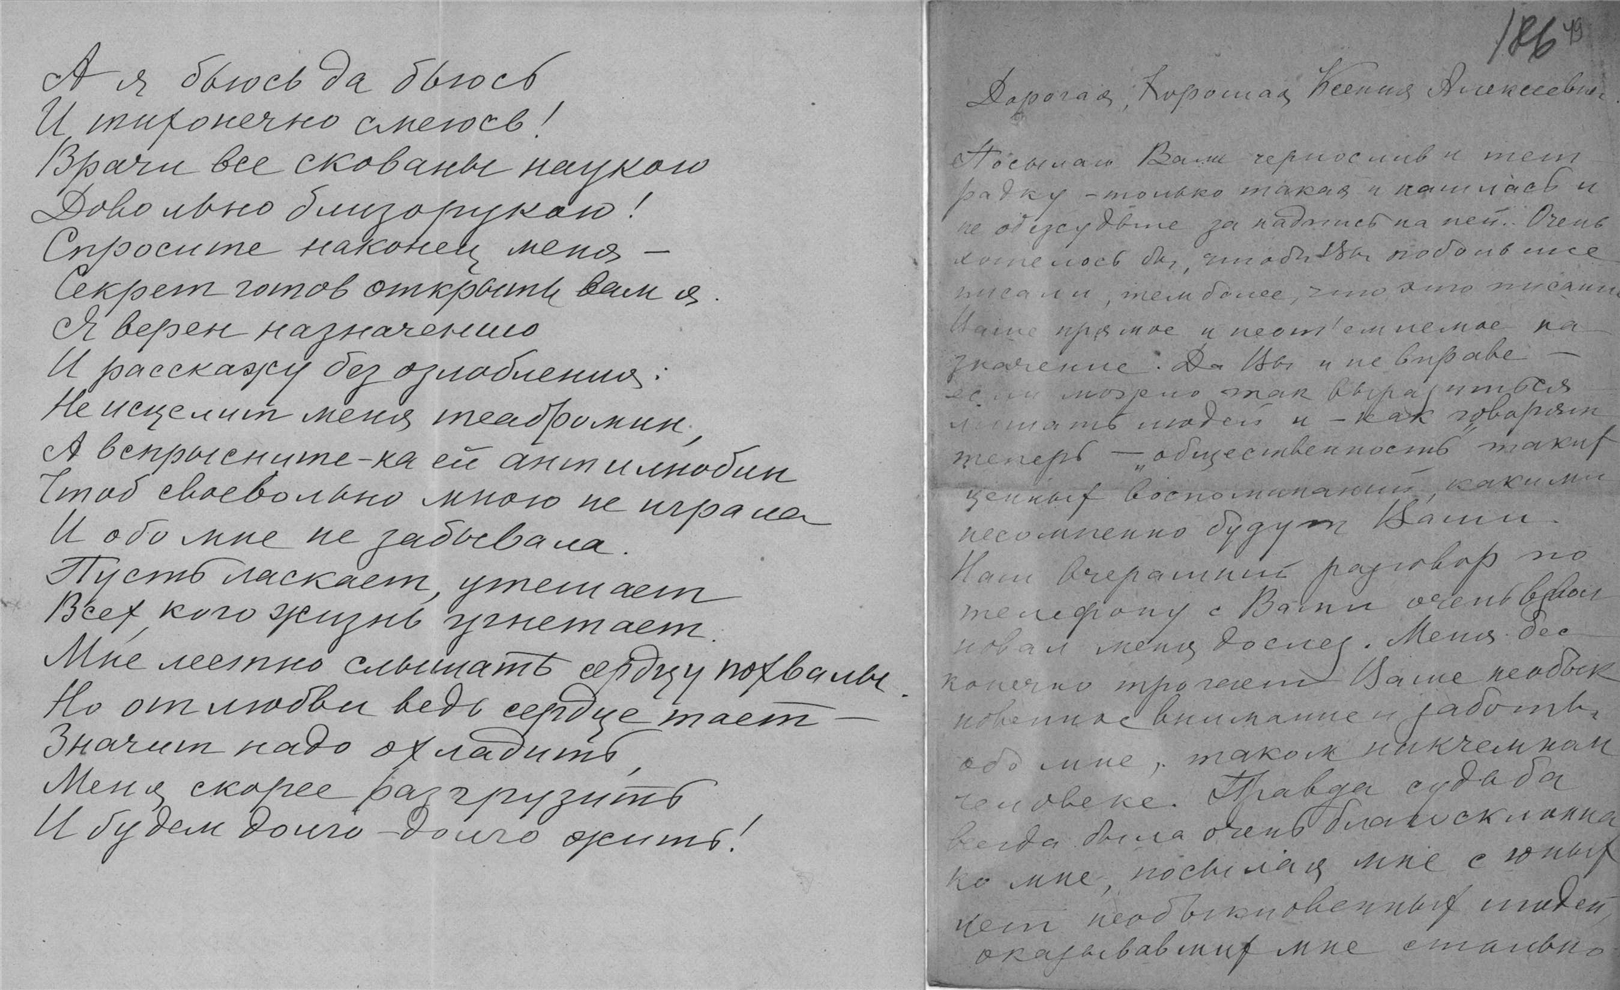 А я бьюсь да бьюсь
И тихонечко смеюсь!
Врачи все скованы наукою
Довольно близорукою!
Спросите наконец меня –
Секрет готов открыть вам я.
Я верен назначению
И расскажу без озлобления:
Не исцелит меня теабромин,
А вспрысните-ка ей антилюбин
Чтоб своевольно мною не играла
И обо мне не забывала.
Пусть ласкает, утешает
Всех, кого жизнь угнетает.
Мне лестно слышать сердцу похвалы.
Но от любви ведь сердце тает –
Значит надо охладить,
Меня скорее разгрузить
И будем долго-долго жить!
186 49
Дорогая, Хорошая Ксения Алексеевна
Посылаю Вам чернослив и тет
радку – только такая и нашлась и
не обессудьте за надпись на ней. Очень
хотелось бы, чтобы Вы побольше
писали, тем более, что это писание
Ваше прямое и неот'емлемое на
значение. Да Вы и не вправе –
если можно так выразиться –
лишать людей и – как говорят
теперь – „общественность" таких
ценных воспоминаний, какими
несомненно будут Ваши.
Наш вчерашний разговор по
телефону с Вами очень взвол
новал меня до слез. Меня бес
конечно трогает Ваше необык
новенное внимание и заботы
обо мне, таком никчемном
человеке. Правда судьба
всегда была очень благосклонна
ко мне, посылая мне с юных
лет необыкновенных людей,
оказывавших мне столько